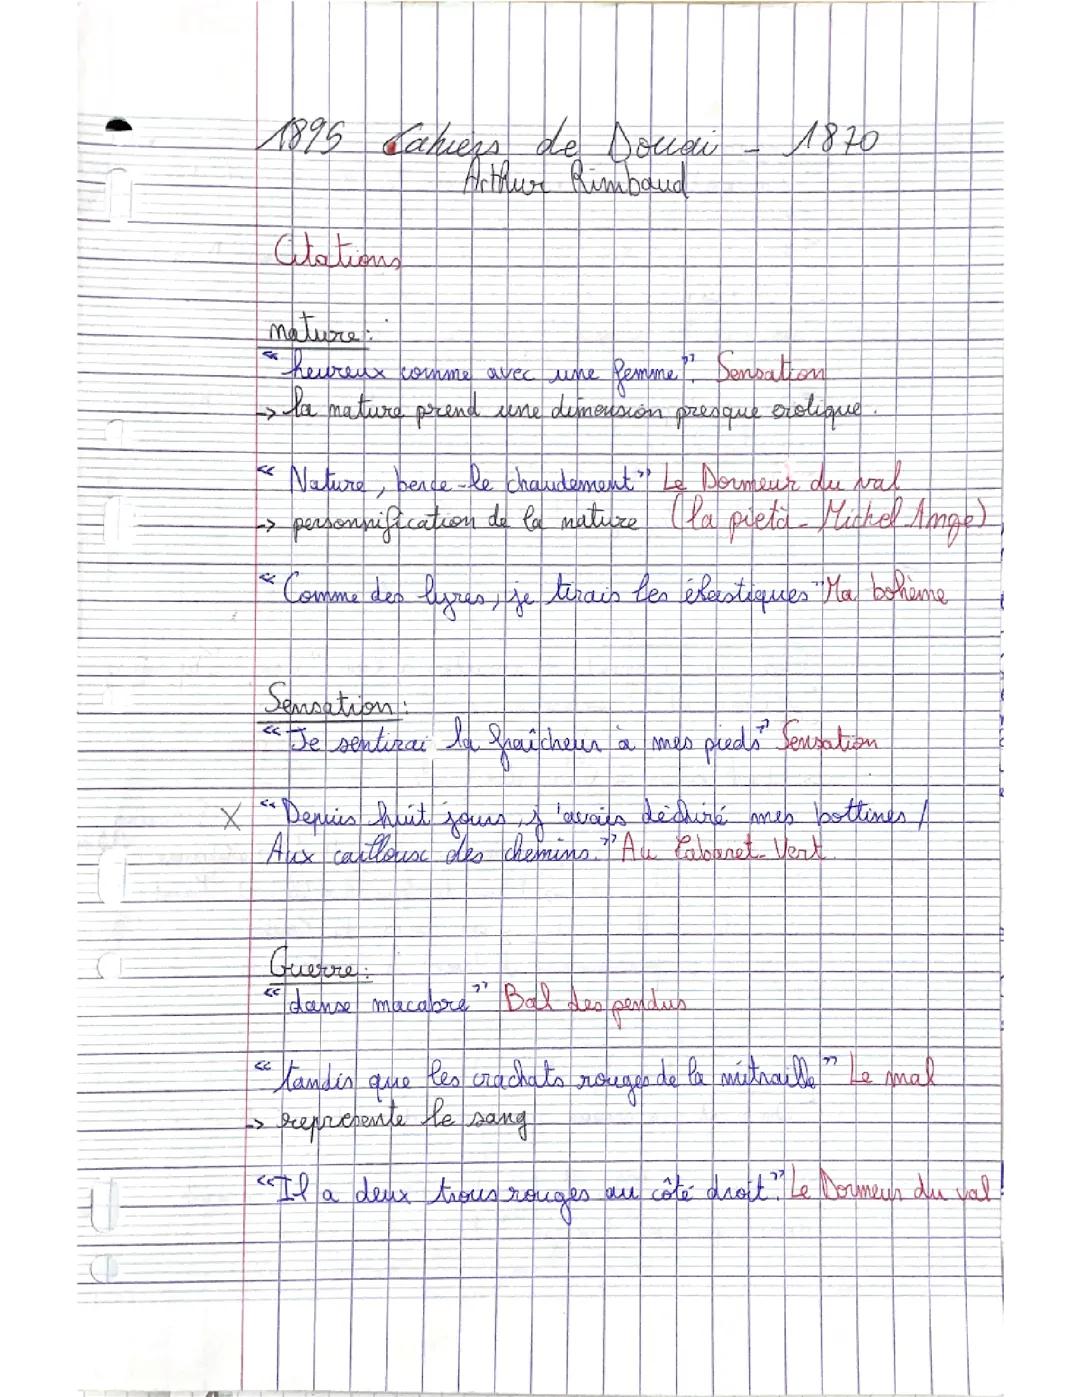 1895 Cahiers de Douai - 1870
Arthur Rimbaud
Citations
nature :
« heureux comme avec une femme ». Sensation
-> la nature prend une dimension presque érotique.
« Nature, berce-le chaudement » Le Dormeur du val
-> personnification de la nature (la pietà - Michel Ange)
« Comme des lyres, je tirais les élastiques » Ma bohème
Sensation :
« Je sentirai la fraîcheur à mes pieds » Sensation
X « Depuis huit jours, j'avais déchiré mes bottines /
Aux cailloux des chemins. » Au Cabaret-Vert.
Guerre :
« danse macabre » Bal des pendus
« tandis que les crachats rouges de la mitraille » Le mal
-> représente le sang
« Il a deux trous rouges au côté droit. » Le Dormeur du val